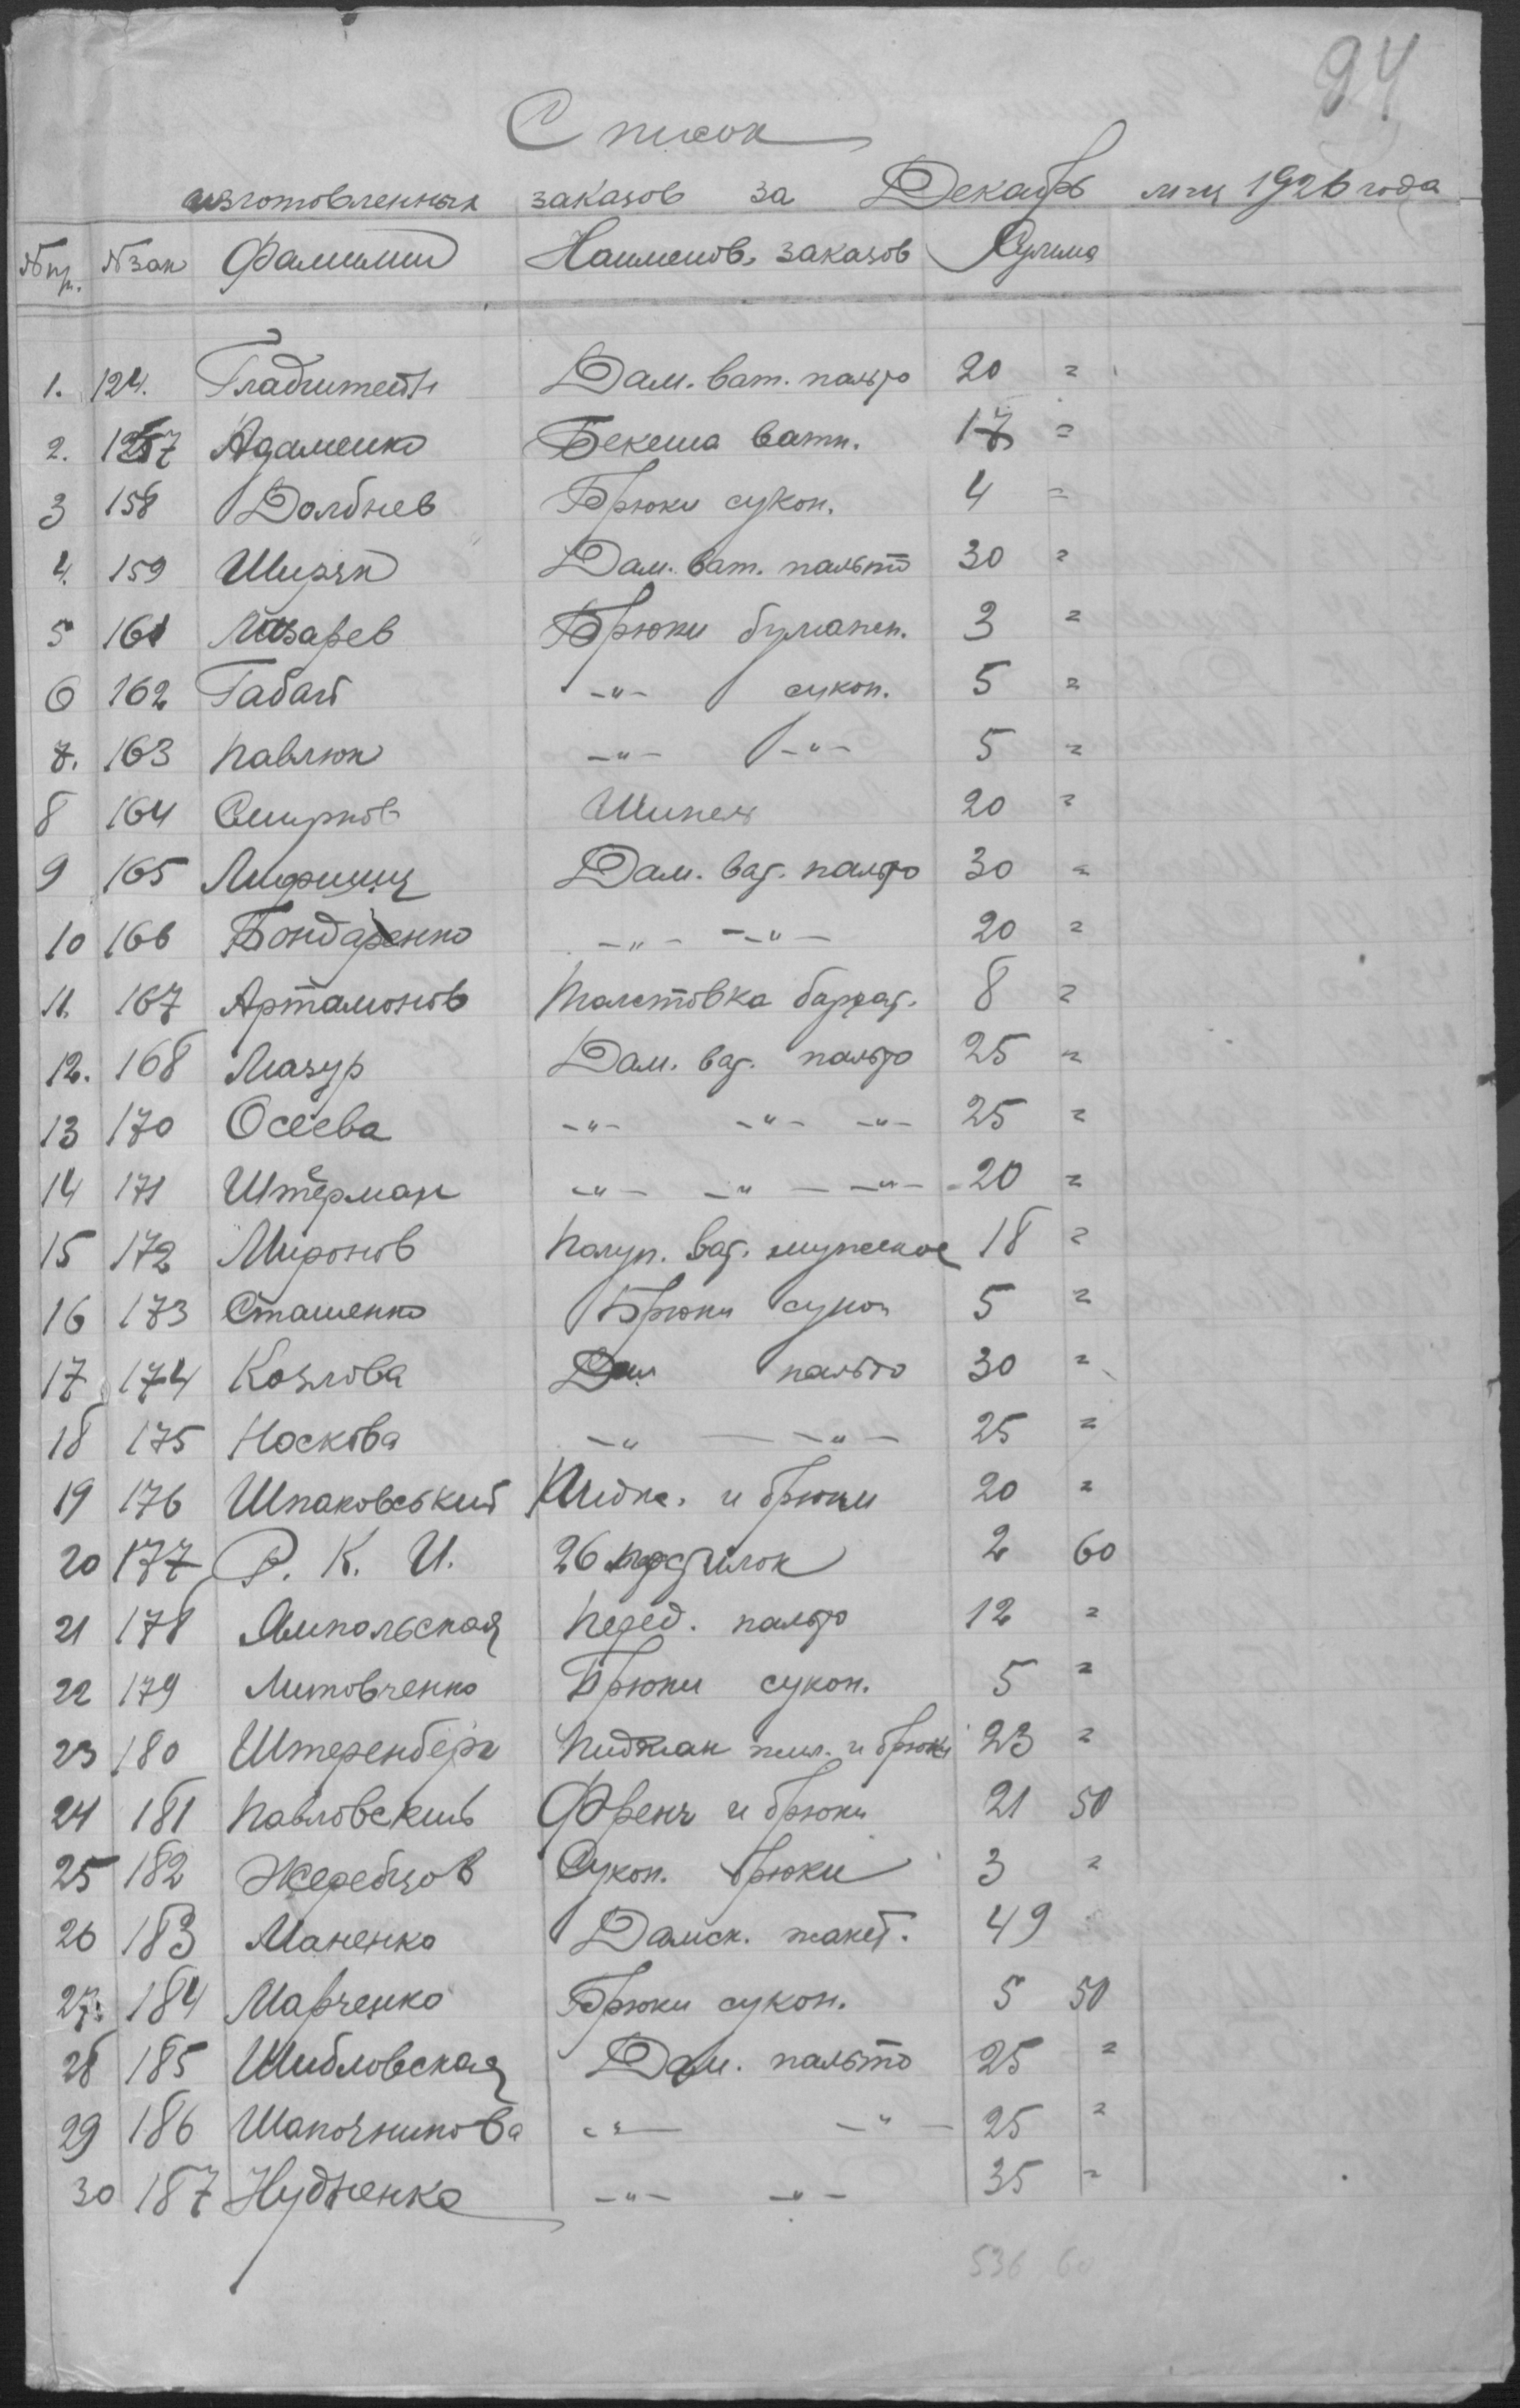 94
Список
изготовленных заказов за Декабрь м-ц 1926 года
№ пр. № зак Фамилии Наименов. заказов Сумма
1. 124. Гладштейн Дам. ват. пальто 20 =
2. 157 Адаменко Бекеша ватн. 17 =
3 158 Долбнев Брюки сукон. 4 =
4. 159 Ширяк Дам. ват. пальто 30 =
5 161 Лазарев Брюки бумажн. 3 =
6 162 Габай -"- сукон. 5 =
7. 163 Павлюк -"- -"- 5 =
8 164 Смирнов Шинель 20 =
9 165 Лифшиц Дам. ват. пальто 30 =
10 166 Бондаренко -"- -"- 20 =
11. 167 Артамонов Толстовка бархат. 8 =
12. 168 Мазур Дам. ват. пальто 25 =
13 170 Осеева -"- -"- -"- 25 =
14 171 Штерман -"- -"- -"- 20 =
15 172 Миронов Полуп. ват. мужское 18 =
16 173 Сташенко Брюки сукон 5 =
17 174 Козлова Дам пальто 30 =
18 175 Носкова -"- -"- 25 =
19 176 Шпаковський Пидж. и брюки 20 =
20 177 Р. К. И. 26 подстилок 2 60
21 178 Ямпольская Перед. пальто 12 =
22 179 Литовченко Брюки сукон. 5 =
23 180 Штеренберг Пиджак жил. и брюки 23 =
24 181 Павловский Френч и брюки 21 50
25 182 Жеребцов Сукон. брюки 3 =
26 183 Маненко Дамск. жакет. 49
27. 184 Марченко Брюки сукон. 5 50
28 185 Шидловская Дам. пальто 25 =
29 186 Шапочникова -"- -"- 25 =
30 187 Нудженко -"- -"- 35 =
536 60